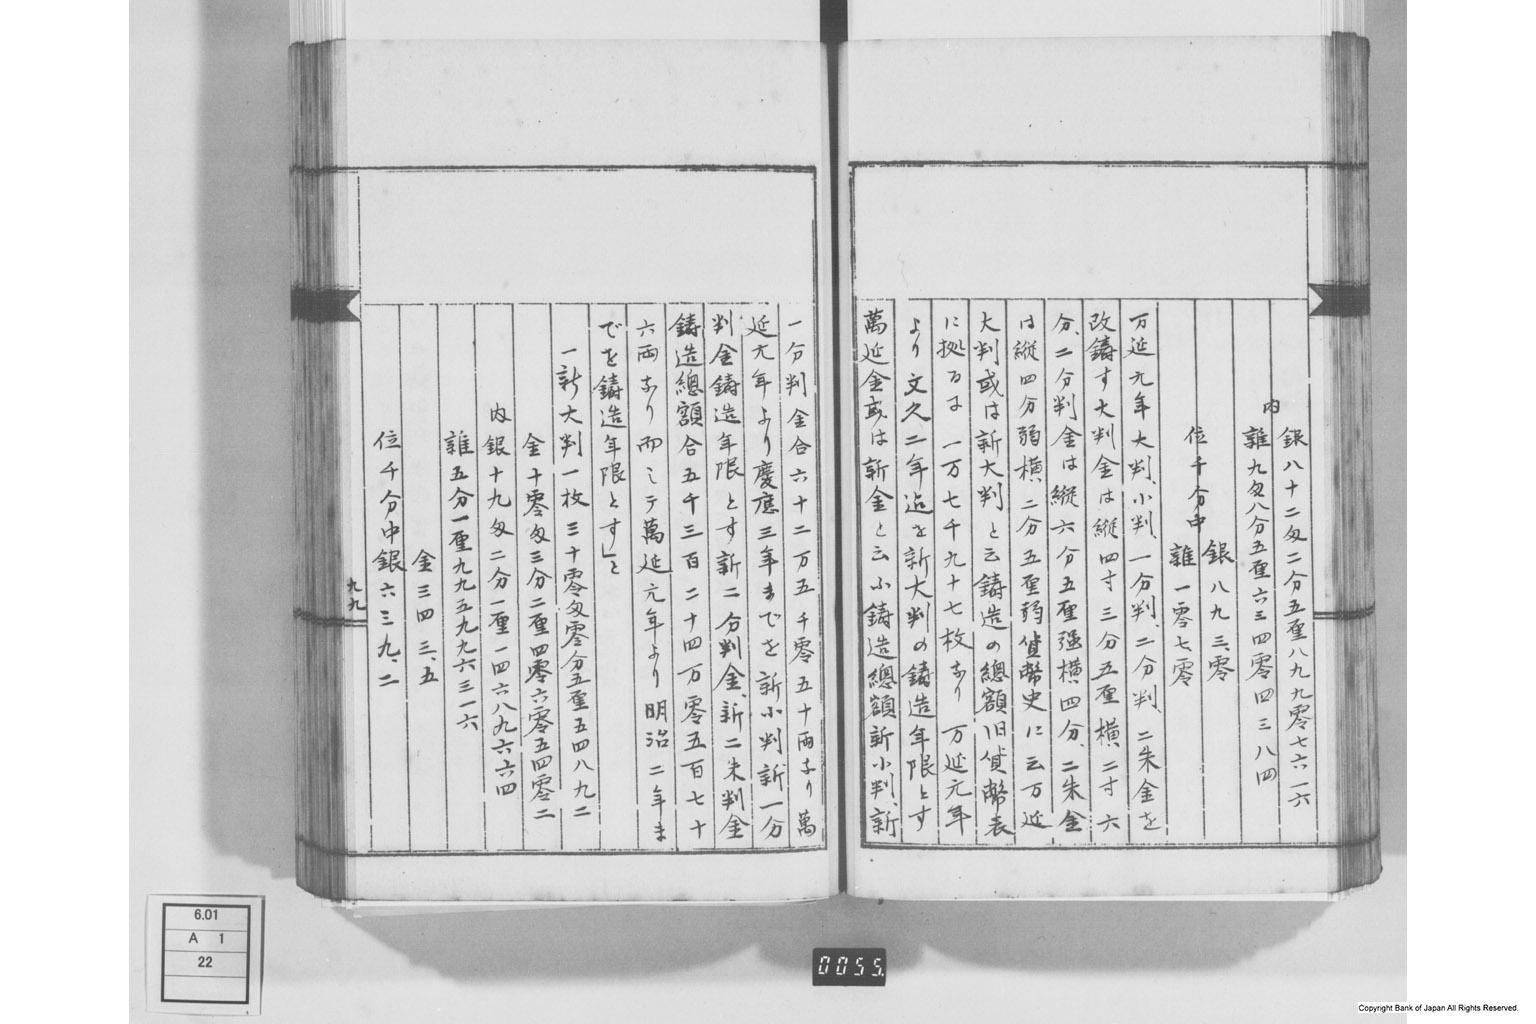 銀八十二匁二分五厘八九九零七六一六
内
雜九匁八分五厘六三四零零四三八四
銀八九三、零
位千分中
雜一零七零
万延元年大判、小判、一分判、二分判、二朱金を
改鋳す大判金は縦四寸三分五厘横二寸六
分、二分判金は縦六分五厘强横四分、二朱金
は縦四分弱横二分五厘弱貨幣史に云万延
大判或は新大判と云鋳造の總額旧貨幣表
に拠るに一万七千九十七枚なり万延元年
より文久二年迄を新大判の鋳造年限とす
萬延金或は新金と云ふ鋳造總額新小判、新
一分判金合六十二万五千零五十両なり萬
延元年より慶應三年までを新小判新一分
判金鋳造年限とす新二分判金、新二朱判金
鋳造總額合五千三百二十四万零五百七十
六両なり而シテ萬延元年より明治二年ま
でを鋳造年限とす」と
一新大判一枚三十零匁零分五厘五四八九二
金十零匁三分二厘四零六零五四零二
内銀十九匁二分一厘一四六八九六六四
雜五分一厘九九五九九六三一六
金三四三、五
位千分中銀六三九、二
九九
6.01
A 1
22
0055.
Copyright Bank of Japan All Rights Reserved.